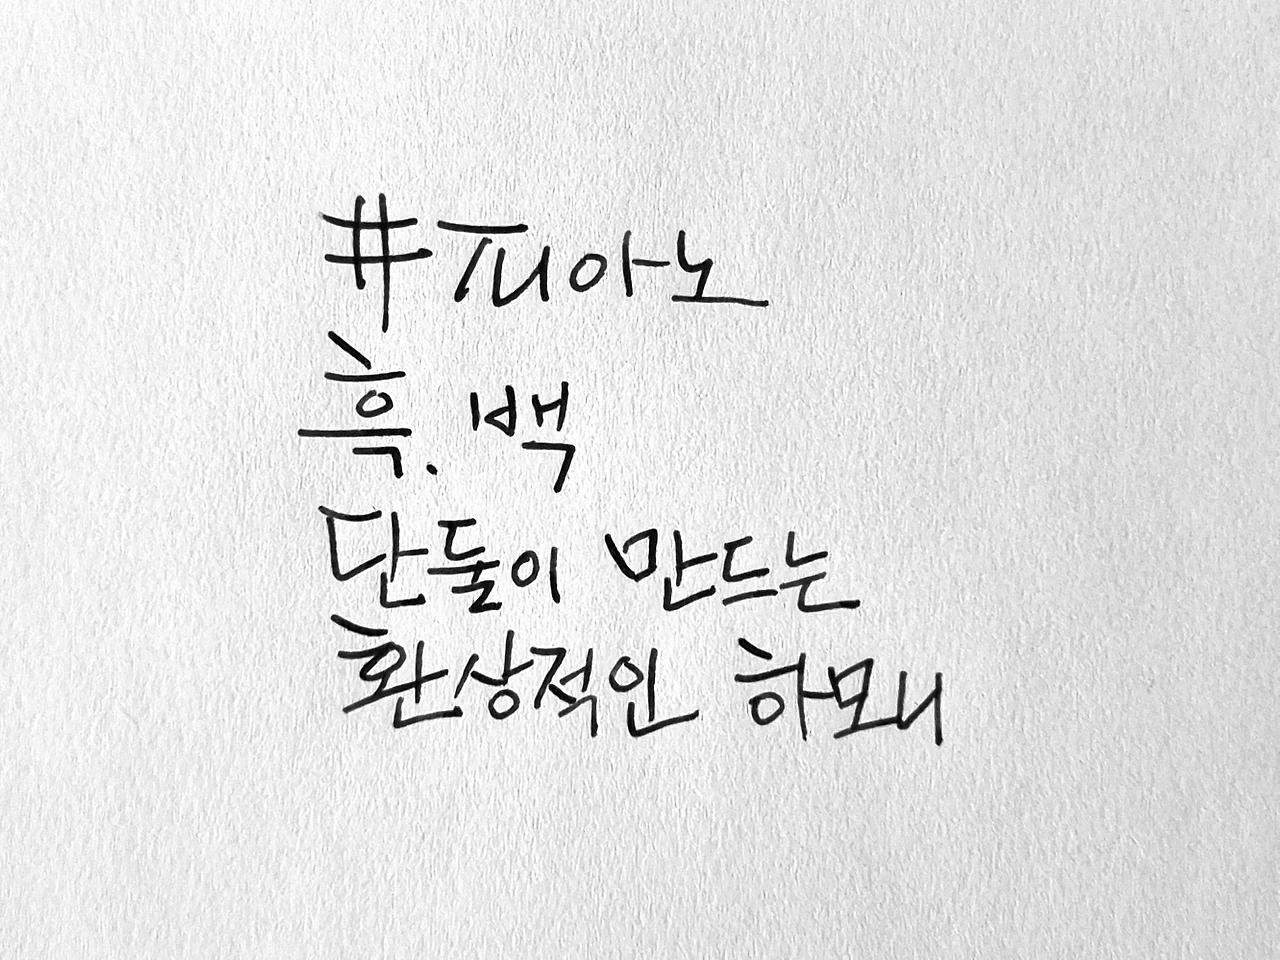 #피아노
흑.백
단둘이 만드는
환상적인 하모니